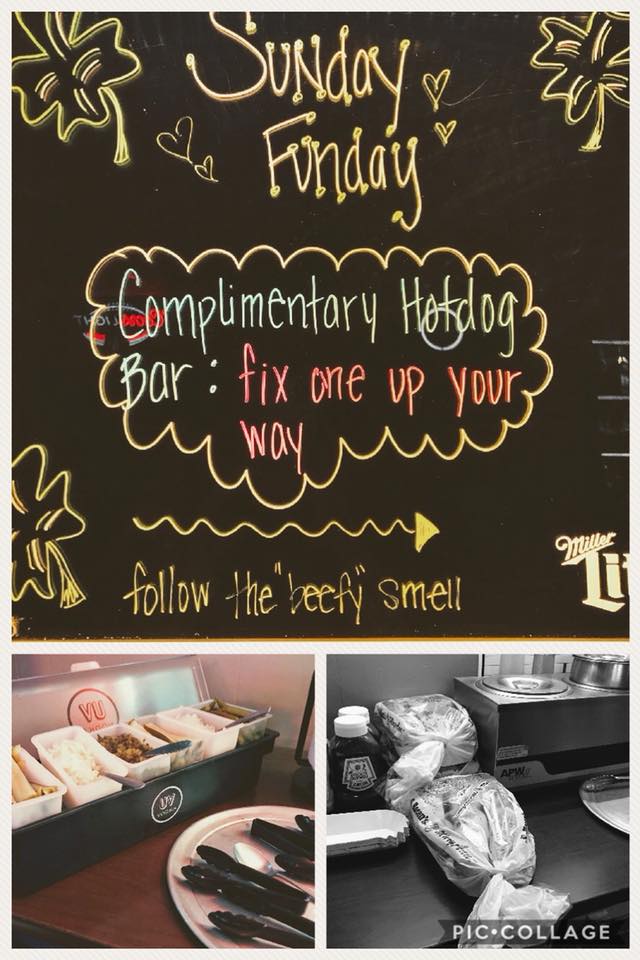 Sunday
Funday
Complimentary Hotdog
Bar: fix one up your
way
follow the "beefy" smell
Miller
Lit
VU
UV
APW
PIC•COLLAGE